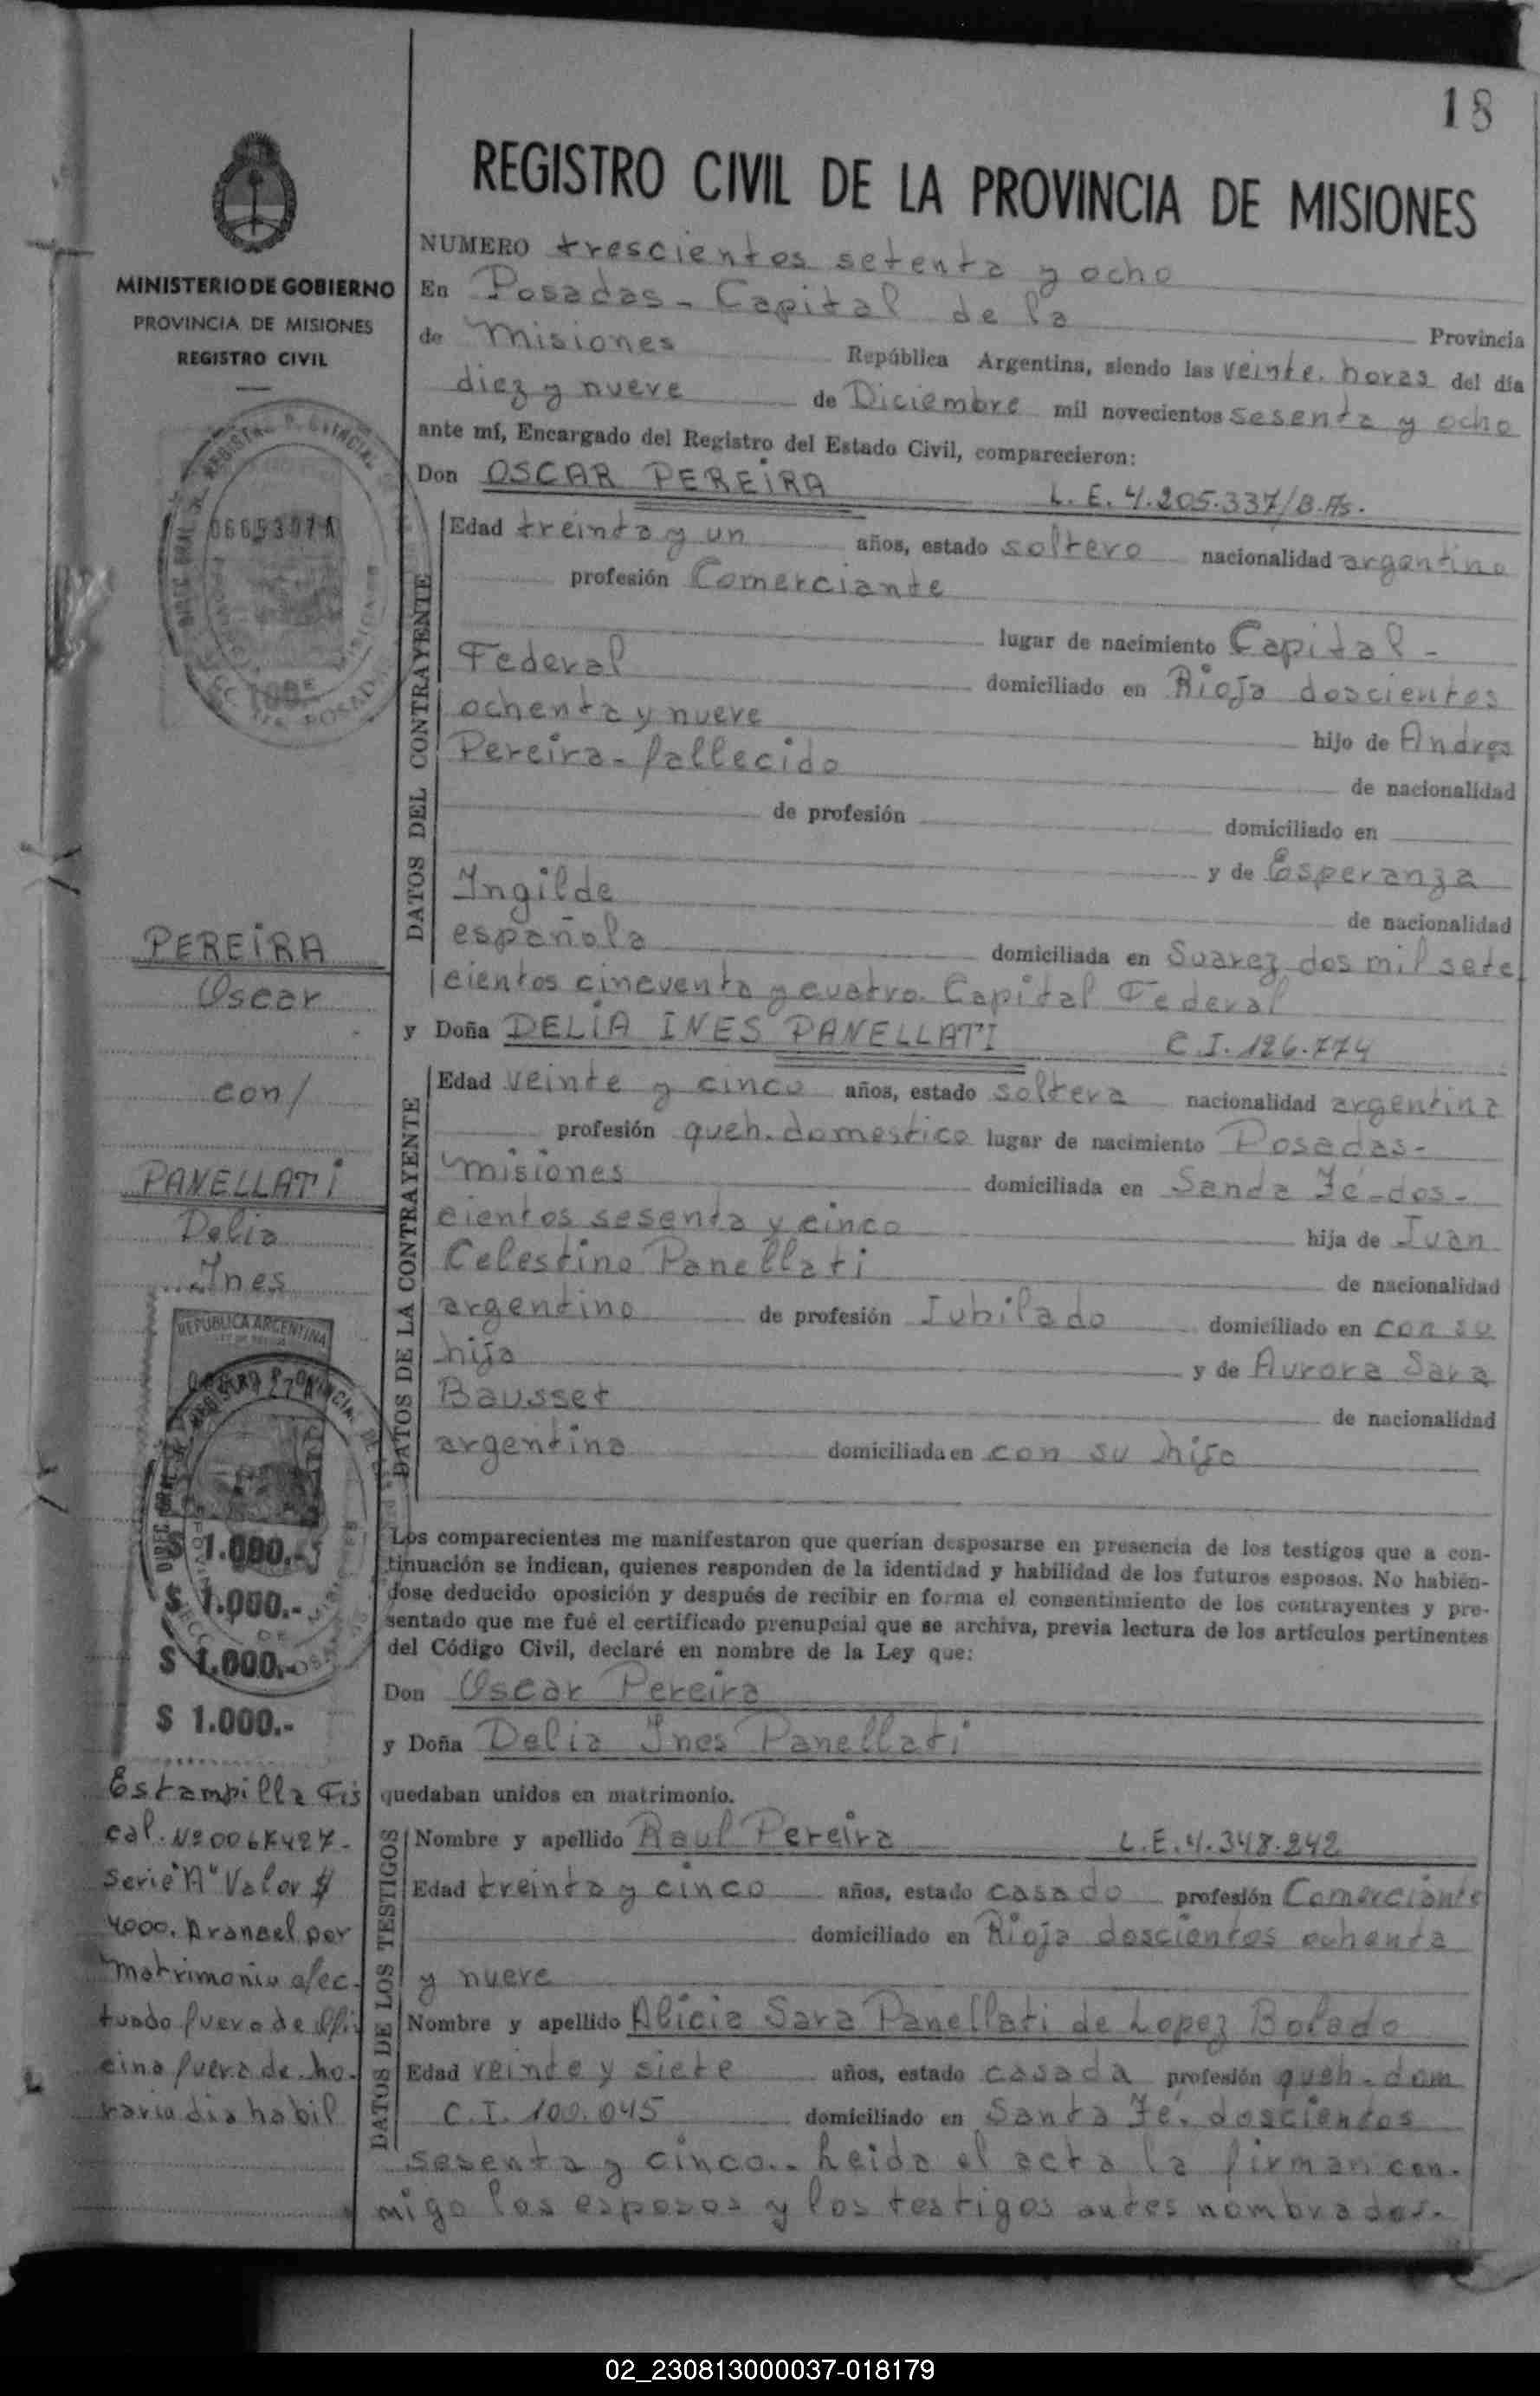 18
REGISTRO CIVIL DE LA PROVINCIA DE MISIONES
MINISTERIO DE GOBIERNO
PROVINCIA DE MISIONES
REGISTRO CIVIL
NUMERO trescientos setenta y ocho
En Posadas - Capital de la Provincia
de Misiones República Argentina, siendo las veinte horas del día
diez y nueve de Diciembre mil novecientos sesenta y ocho
ante mí, Encargado del Registro del Estado Civil, comparecieron:
Don OSCAR PEREIRA L. E. 4.205.337/B.As.
DATOS DEL CONTRAYENTE
Edad treinta y un años, estado soltero nacionalidad argentino
profesión Comerciante
lugar de nacimiento Capital -
Federal domiciliado en Rioja doscientos
ochenta y nueve hijo de Andres
Pereira - fallecido de nacionalidad
de profesión domiciliado en
y de Esperanza
Ingilde de nacionalidad
española domiciliada en Suarez dos mil sete
cientos cincuenta y cuatro. Capital Federal
y Doña DELIA INES PANELLATI C.I. 126.774
DATOS DE LA CONTRAYENTE
Edad veinte y cinco años, estado soltera nacionalidad argentina
profesión queh. domestico lugar de nacimiento Posadas -
Misiones domiciliada en Santa Fé - dos -
cientos sesenta y cinco hija de Juan
Celestino Panellati de nacionalidad
argentino de profesión Jubilado domiciliado en con su
hija y de Aurora Sara
Bausset de nacionalidad
argentina domiciliada en con su hija
Los comparecientes me manifestaron que querían desposarse en presencia de los testigos que a con-
tinuación se indican, quienes responden de la identidad y habilidad de los futuros esposos. No habién-
dose deducido oposición y después de recibir en forma el consentimiento de los contrayentes y pre-
sentado que me fué el certificado prenupcial que se archiva, previa lectura de los artículos pertinentes
del Código Civil, declaré en nombre de la Ley que:
Don Oscar Pereira
y Doña Delia Ines Panellati
quedaban unidos en matrimonio.
DATOS DE LOS TESTIGOS
Nombre y apellido Raul Pereira L.E. 4.348.242
Edad treinta y cinco años, estado casado profesión Comerciante
domiciliado en Rioja doscientos ochenta
y nueve
Nombre y apellido Alicia Sara Panellati de Lopez Bolado
Edad veinte y siete años, estado casada profesión queh. dom
C.I. 100.045 domiciliado en Santa Fé. doscientos
sesenta y cinco.. Leida el acta la firman con-
migo los esposos y los testigos antes nombrados.
PEREIRA
Oscar
con/
PANELLATI
Delia
Ines
REPUBLICA ARGENTINA
$ 1.000.-
$ 1.000.-
$ 1.000.-
$ 1.000.-
Estampilla Fis
cal. Nº
Serie "A" Valor $
4000. Arancel por
Matrimonio efec-
tuado fuera de ofi
cina fuera de ho-
rario dia habil
02_230813000037-018179